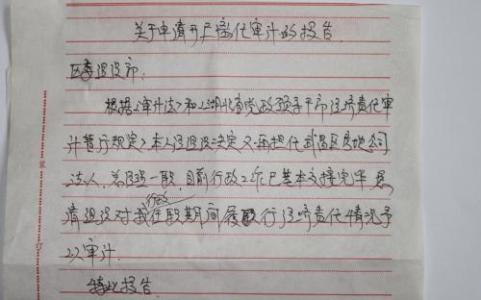 关于申请开广离任审计的报告
区委组织部:
根据《审计法》和《湖北省党政领导干部经济责任审
计暂行规定》本人经组织决定不再担任武昌区房地公司
法人、总经理一职,目前行政工作已基本交接完毕 恳
请组织对我行政任职期间履行经济责任情况予
以审计.
特此报告